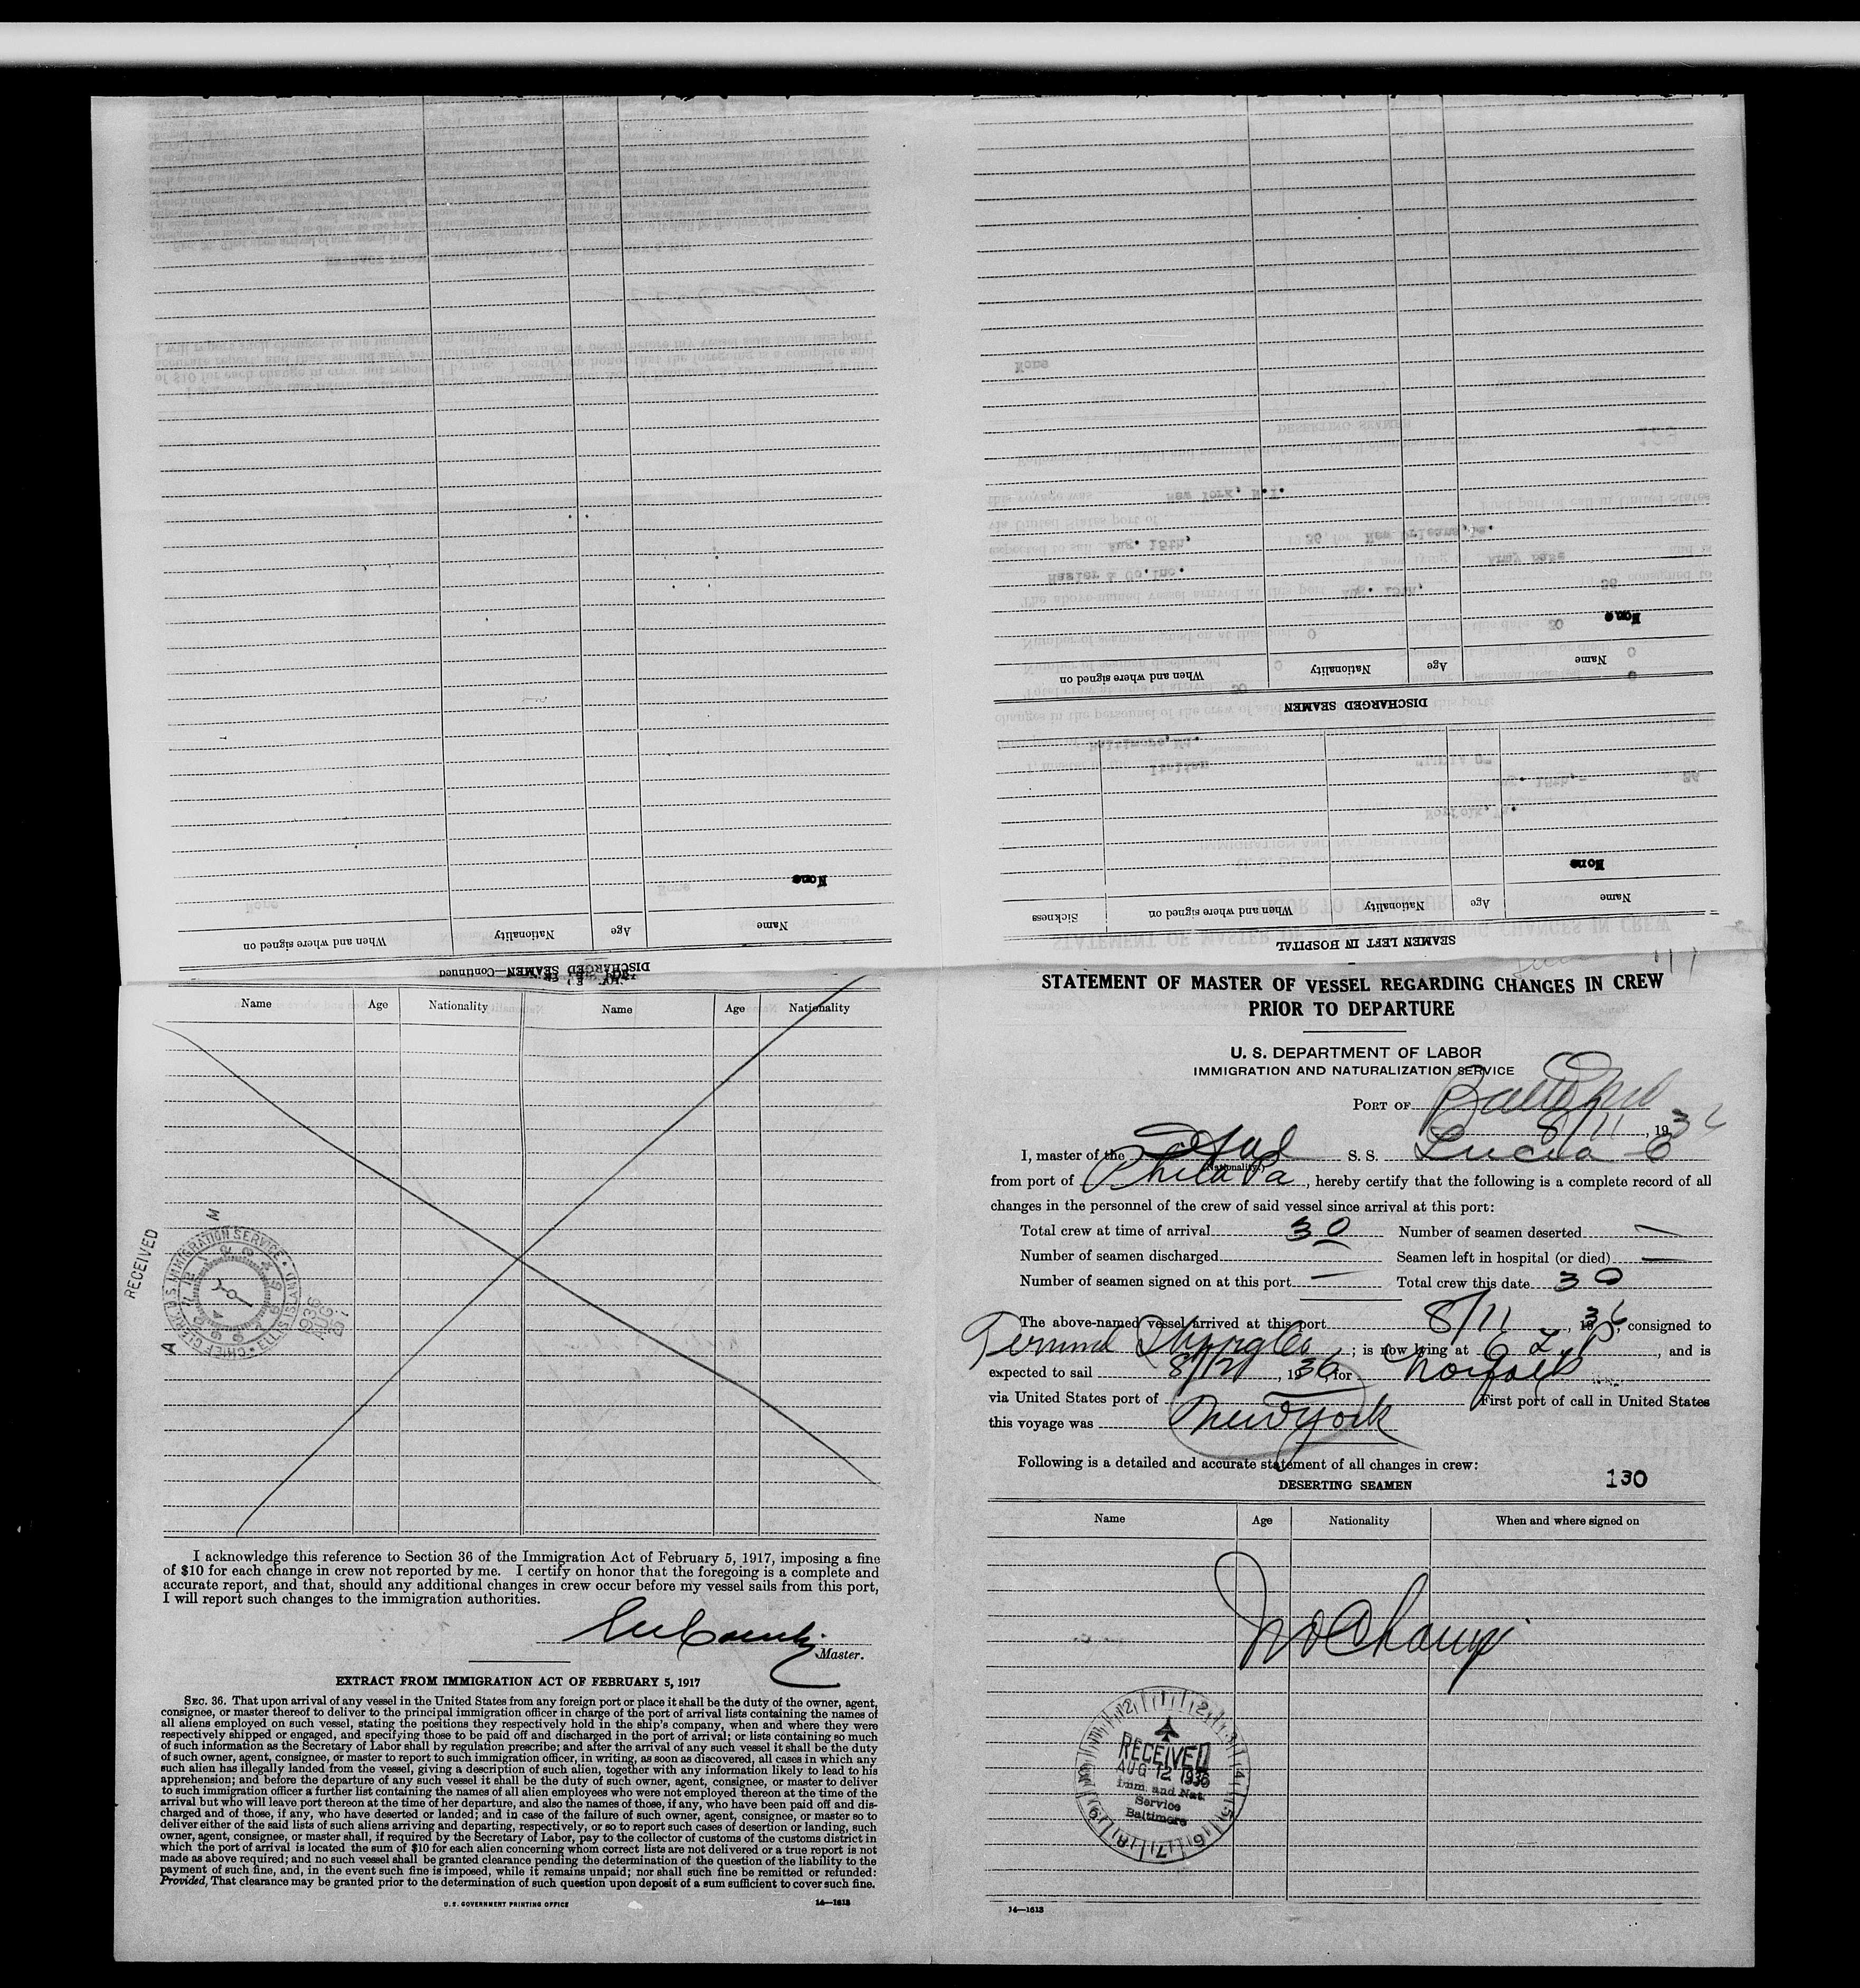 SEAMEN LEFT IN HOSPITAL
Name Age Nationality When and where signed on Sickness
None
DISCHARGED SEAMEN
Name Age Nationality When and where signed on
None
DISCHARGED SEAMEN—Continued
Name Age Nationality When and where signed on
None
Name Age Nationality Name Age Nationality
RECEIVED
U.S. IMMIGRATION SERVICE
CHIEF CLERK
I acknowledge this reference to Section 36 of the Immigration Act of February 5, 1917, imposing a fine
of $10 for each change in crew not reported by me. I certify on honor that the foregoing is a complete and
accurate report, and that, should any additional changes in crew occur before my vessel sails from this port,
I will report such changes to the immigration authorities.
Master.
EXTRACT FROM IMMIGRATION ACT OF FEBRUARY 5, 1917
SEC. 36. That upon arrival of any vessel in the United States from any foreign port or place it shall be the duty of the owner, agent,
consignee, or master thereof to deliver to the principal immigration officer in charge of the port of arrival lists containing the names of
all aliens employed on such vessel, stating the positions they respectively hold in the ship's company, when and where they were
respectively shipped or engaged, and specifying those to be paid off and discharged in the port of arrival; or lists containing so much
of such information as the Secretary of Labor shall by regulation prescribe; and after the arrival of any such vessel it shall be the duty
of such owner, agent, consignee, or master to report to such immigration officer, in writing, as soon as discovered, all cases in which any
such alien has illegally landed from the vessel, giving a description of such alien, together with any information likely to lead to his
apprehension; and before the departure of any such vessel it shall be the duty of such owner, agent, consignee, or master to deliver
to such immigration officer a further list containing the names of all alien employees who were not employed thereon at the time of the
arrival but who will leave port thereon at the time of her departure, and also the names of those, if any, who have been paid off and dis-
charged and of those, if any, who have deserted or landed; and in case of the failure of such owner, agent, consignee, or master so to
deliver either of the said lists of such aliens arriving and departing, respectively, or so to report such cases of desertion or landing, such
owner, agent, consignee, or master shall, if required by the Secretary of Labor, pay to the collector of customs of the customs district in
which the port of arrival is located the sum of $10 for each alien concerning whom correct lists are not delivered or a true report is not
made as above required; and no such vessel shall be granted clearance pending the determination of the question of the liability to the
payment of such fine, and, in the event such fine is imposed, while it remains unpaid; nor shall such fine be remitted or refunded:
Provided, That clearance may be granted prior to the determination of such question upon deposit of a sum sufficient to cover such fine.
U. S. GOVERNMENT PRINTING OFFICE 14—1613
STATEMENT OF MASTER OF VESSEL REGARDING CHANGES IN CREW
PRIOR TO DEPARTURE
U. S. DEPARTMENT OF LABOR
IMMIGRATION AND NATURALIZATION SERVICE
PORT OF Balto Md
8/11, 1936
I, master of the S. S. Lucia C
(Nationality)
from port of Phila Pa, hereby certify that the following is a complete record of all
changes in the personnel of the crew of said vessel since arrival at this port:
Total crew at time of arrival 30 Number of seamen deserted —
Number of seamen discharged Seamen left in hospital (or died) —
Number of seamen signed on at this port — Total crew this date 30
The above-named vessel arrived at this port 8/11, 1936, consigned to
; is now lying at , and is
expected to sail 8/12, 1936 for Norfolk
via United States port of First port of call in United States
this voyage was New York
Following is a detailed and accurate statement of all changes in crew:
130
DESERTING SEAMEN
Name Age Nationality When and where signed on
No Change
RECEIVED
AUG 12 1936
Imm. and Nat.
Service
Baltimore
14—1613